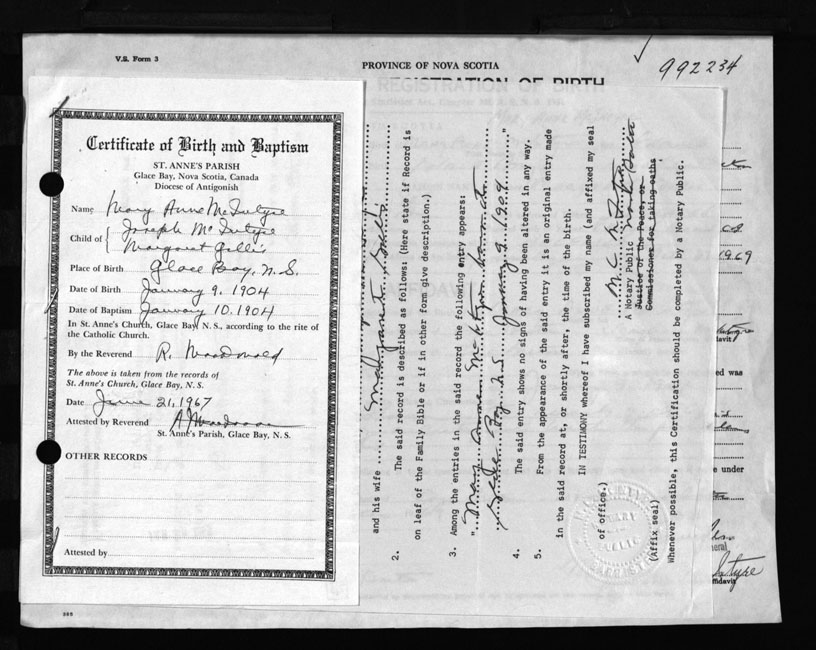 V.S. Form 3
PROVINCE OF NOVA SCOTIA
992234
REGISTRATION OF BIRTH
Certificate of Birth and Baptism
ST. ANNE'S PARISH
Glace Bay, Nova Scotia, Canada
Diocese of Antigonish
Name Mary Anne McIntyre
Child of { Joseph McIntyre
Margaret Gillis
Place of Birth Glace Bay, N.S.
Date of Birth January 9. 1904
Date of Baptism January 10. 1904
In St. Anne's Church, Glace Bay, N. S., according to the rite of
the Catholic Church.
By the Reverend R. Macdonald
The above is taken from the records of
St. Anne's Church, Glace Bay, N. S.
Date June 21, 1967
Attested by Reverend
St. Anne's Parish, Glace Bay, N. S.
OTHER RECORDS
Attested by
and his wife Margaret
2. The said record is described as follows: (Here state if Record is
on leaf of the Family Bible or if in other form give description.)
3. Among the entries in the said record the following entry appears:
" Mary Anne McIntyre
Glace Bay N.S. January 9 1904 "
4. The said entry shows no signs of having been altered in any way.
5. From the appearance of the said entry it is an original entry made
in the said record at, or shortly after, the time of the birth.
IN TESTIMONY whereof I have subscribed my name (and affixed my seal
of office.)
A Notary Public
Justice of the Peace, or
Commissioner for taking oaths
(Affix seal)
Whenever possible, this Certification should be completed by a Notary Public.
NOTARY
PUBLIC
1969
davit
ed was
e under
neral
ffidavit